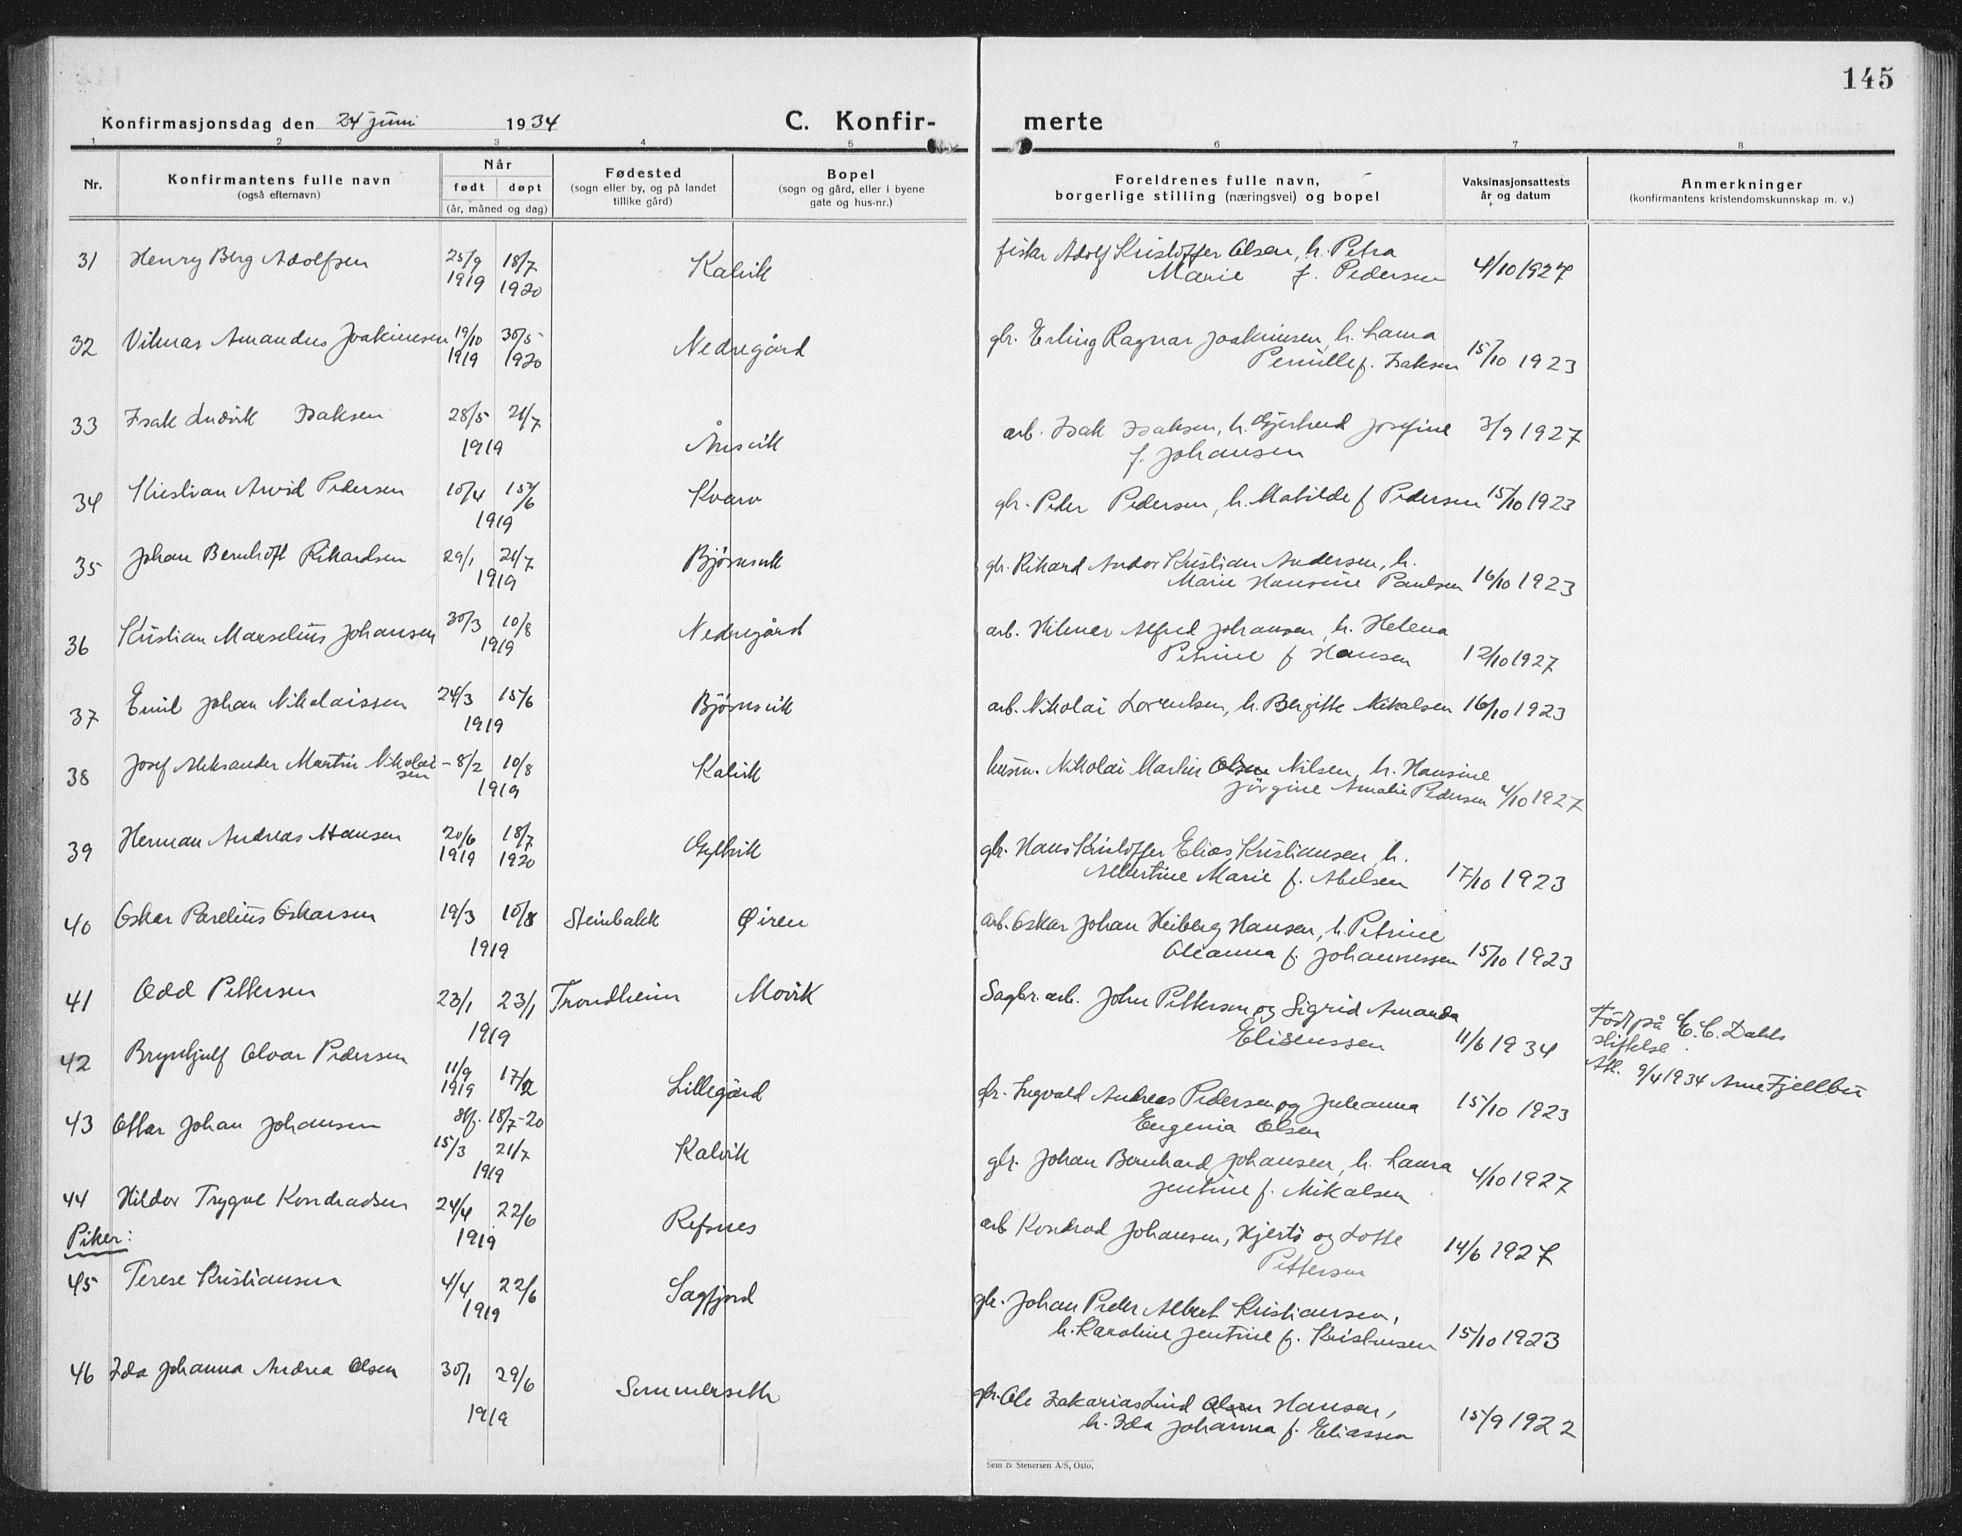 145
Konfirmasjonsdag den 24 juni 1934 C. Konfir- merte
1 2 3 4 5 6 7 8
Nr. Konfirmantens fulle navn (også efternavn) Når født døpt (år, måned og dag) Fødested (sogn eller by, og på landet tillike gård) Bopel (sogn og gård, eller i byene gate og hus-nr.) Foreldrenes fulle navn, borgerlige stilling (næringsvei) og bopel Vaksinasjonsattests år og datum Anmerkninger (konfirmantens kristendomskunnskap m. v.)
31 Henry Berg Adolfsen 25/9 1919 18/7 1920 Kalvik fisker Adolf Kristoffer Olsen, h. Petra
Marie f. Pedersen 4/10 1927
32 Vilmar Amandus Joakimsen 19/10 1919 30/5 1920 Nedregård gbr. Erling Ragnar Joakimsen, h. Laura
Pernille f. Isaksen 15/10 1923
33 Isak Ludvik Isaksen 28/5 21/7 1919 Ånsvik arb. Isak Isaksen, h. Gjertrud Josefine 3/9 1927
f. Johansen
34 Kristian Arvid Pedersen 10/4 15/6 1919 Kvarv gbr. Peder Pedersen, h. Matilde f Pedersen 15/10 1923
35 Johan Bernhoft Rikardsen 29/1 21/7 1919 Bjørnsvik gbr. Rikard Andor Kristian Andersen, h.
Marie Hansine Paulsen 16/10 1923
36 Kristian Marselius Johansen 30/3 10/8 1919 Nedregård arb. Hilmar Alfred Johansen, h. Helena
Petrine f Hansen 12/10 1927
37 Emil Johan Nikolaissen 24/3 15/6 1919 Bjørnsvik arb. Nikolai Lorentsen, h. Bergitte Mikalsen 16/10 1923
38 Josef Aleksander Martin Nikolai-
sen 8/2 10/8 1919 Kalvik husm. Nikolai Martin Olsen Nilsen, h. Hansine
Jørgine Amalie Pedersen 4/10 1927
39 Herman Andreas Hansen 20/6 1919 18/7 1920 Gyltvik gbr. Hans Kristoffer Elias Kristiansen, h.
Albertine Marie f. Abelsen 17/10 1923
40 Oskar Parelius Oskarsen 19/3 10/8 1919 Steinbakk Øiren arb. Oskar Johan Heiberg Hansen, h. Petrine
Oleanna f. Johannessen 15/10 1923
41 Odd Pettersen 23/1 23/1 1919 Trondheim Movik Sagbr. arb. John Pettersen og Sigrid Amanda
Eliseussen 11/6 1934
Født på E. C. Dahls
stiftelse.
Att. 9/4 1934 Arne Fjellbu
42 Brynhjulf Alvar Pedersen 11/9 1919 17/12 Lillegård gbr. Ingvald Andreas Pedersen og Juleanna 15/10 1923
Eugenia Olsen
stf. 18/7-20
43 Ottar Johan Johansen 15/3 21/7 1919 Kalvik gbr. Johan Bernhard Johansen, h. Laura
Jentine f. Mikalsen 4/10 1927
44 Hildor Trygve Kondradsen 24/4 22/6 1919 Refsnes arb Kondrad Johansen, Hjertø og Lotte
Pettersen 14/6 1927
Piker:
45 Terese Kristiansen 4/4 22/6 1919 Sagfjord gbr. Johan Peder Albert Kristiansen,
h. Karoline Jentine f. Kristensen 15/10 1923
46 Ida Johanna Andrea Olsen 30/1 29/6 1919 Sommerseth gbr. Ole Zakarias Lind Olsen Hansen,
h. Ida Johanna f. Eliassen 15/9 1922
Sem & Stenersen A/S, Oslo.